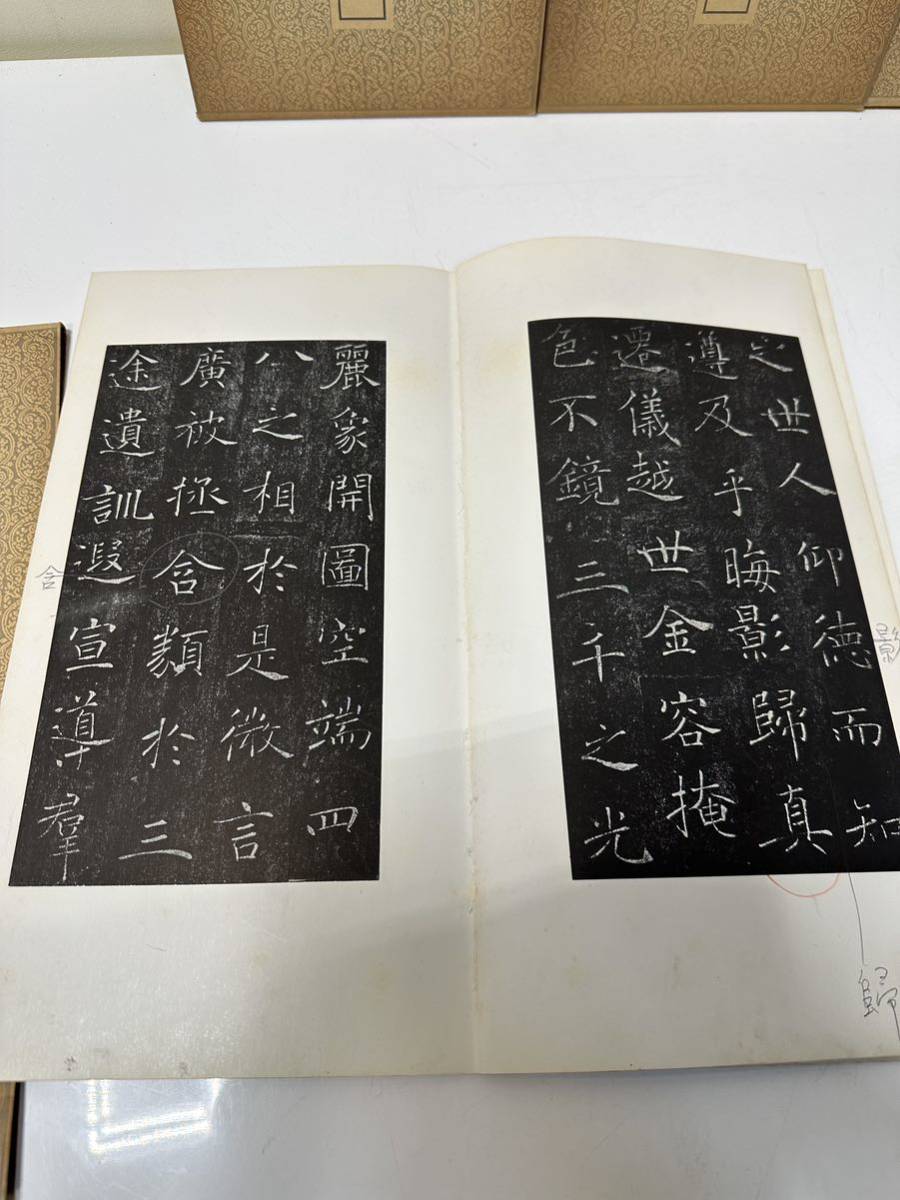 之世人仰德而知
遵及乎晦影歸真
遷儀越世金容掩
色不鏡三千之光
麗象開圖空端四
八之相於是微言
廣被拯含類於三
途遺訓遐宣導羣
影
含